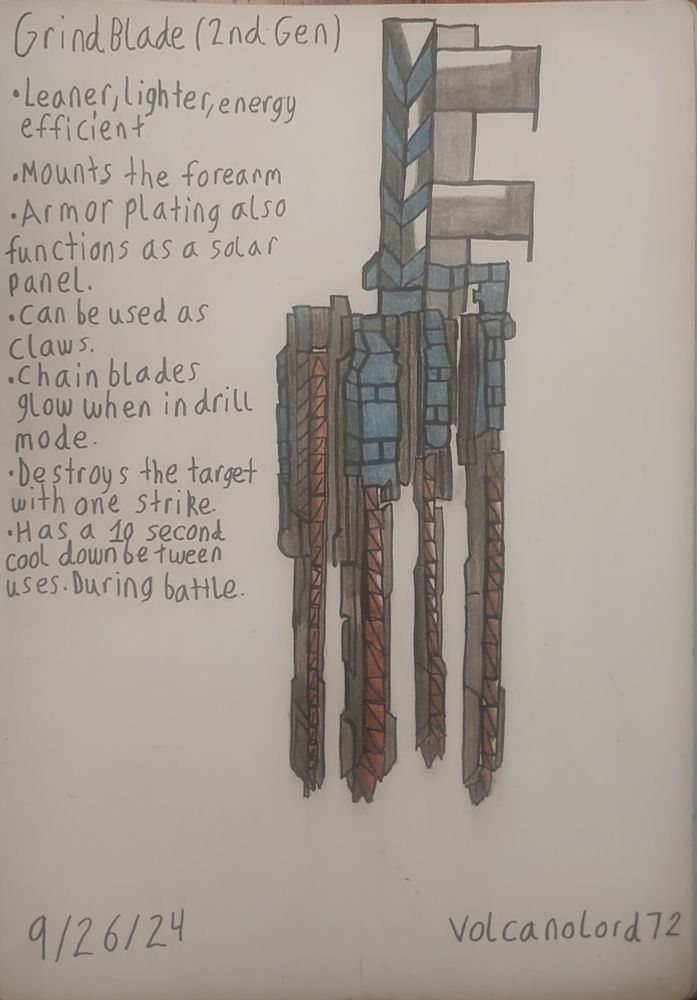 GrindBlade (2nd Gen)
•Leaner, lighter, energy
efficient
•Mounts the forearm
•Armor plating also
functions as a solar
panel.
•Can be used as
claws.
•Chain blades
glow when in drill
mode.
•Destroys the target
with one strike.
•Has a 10 second
cool down between
uses. During battle.
9/26/24
Volcanolord72